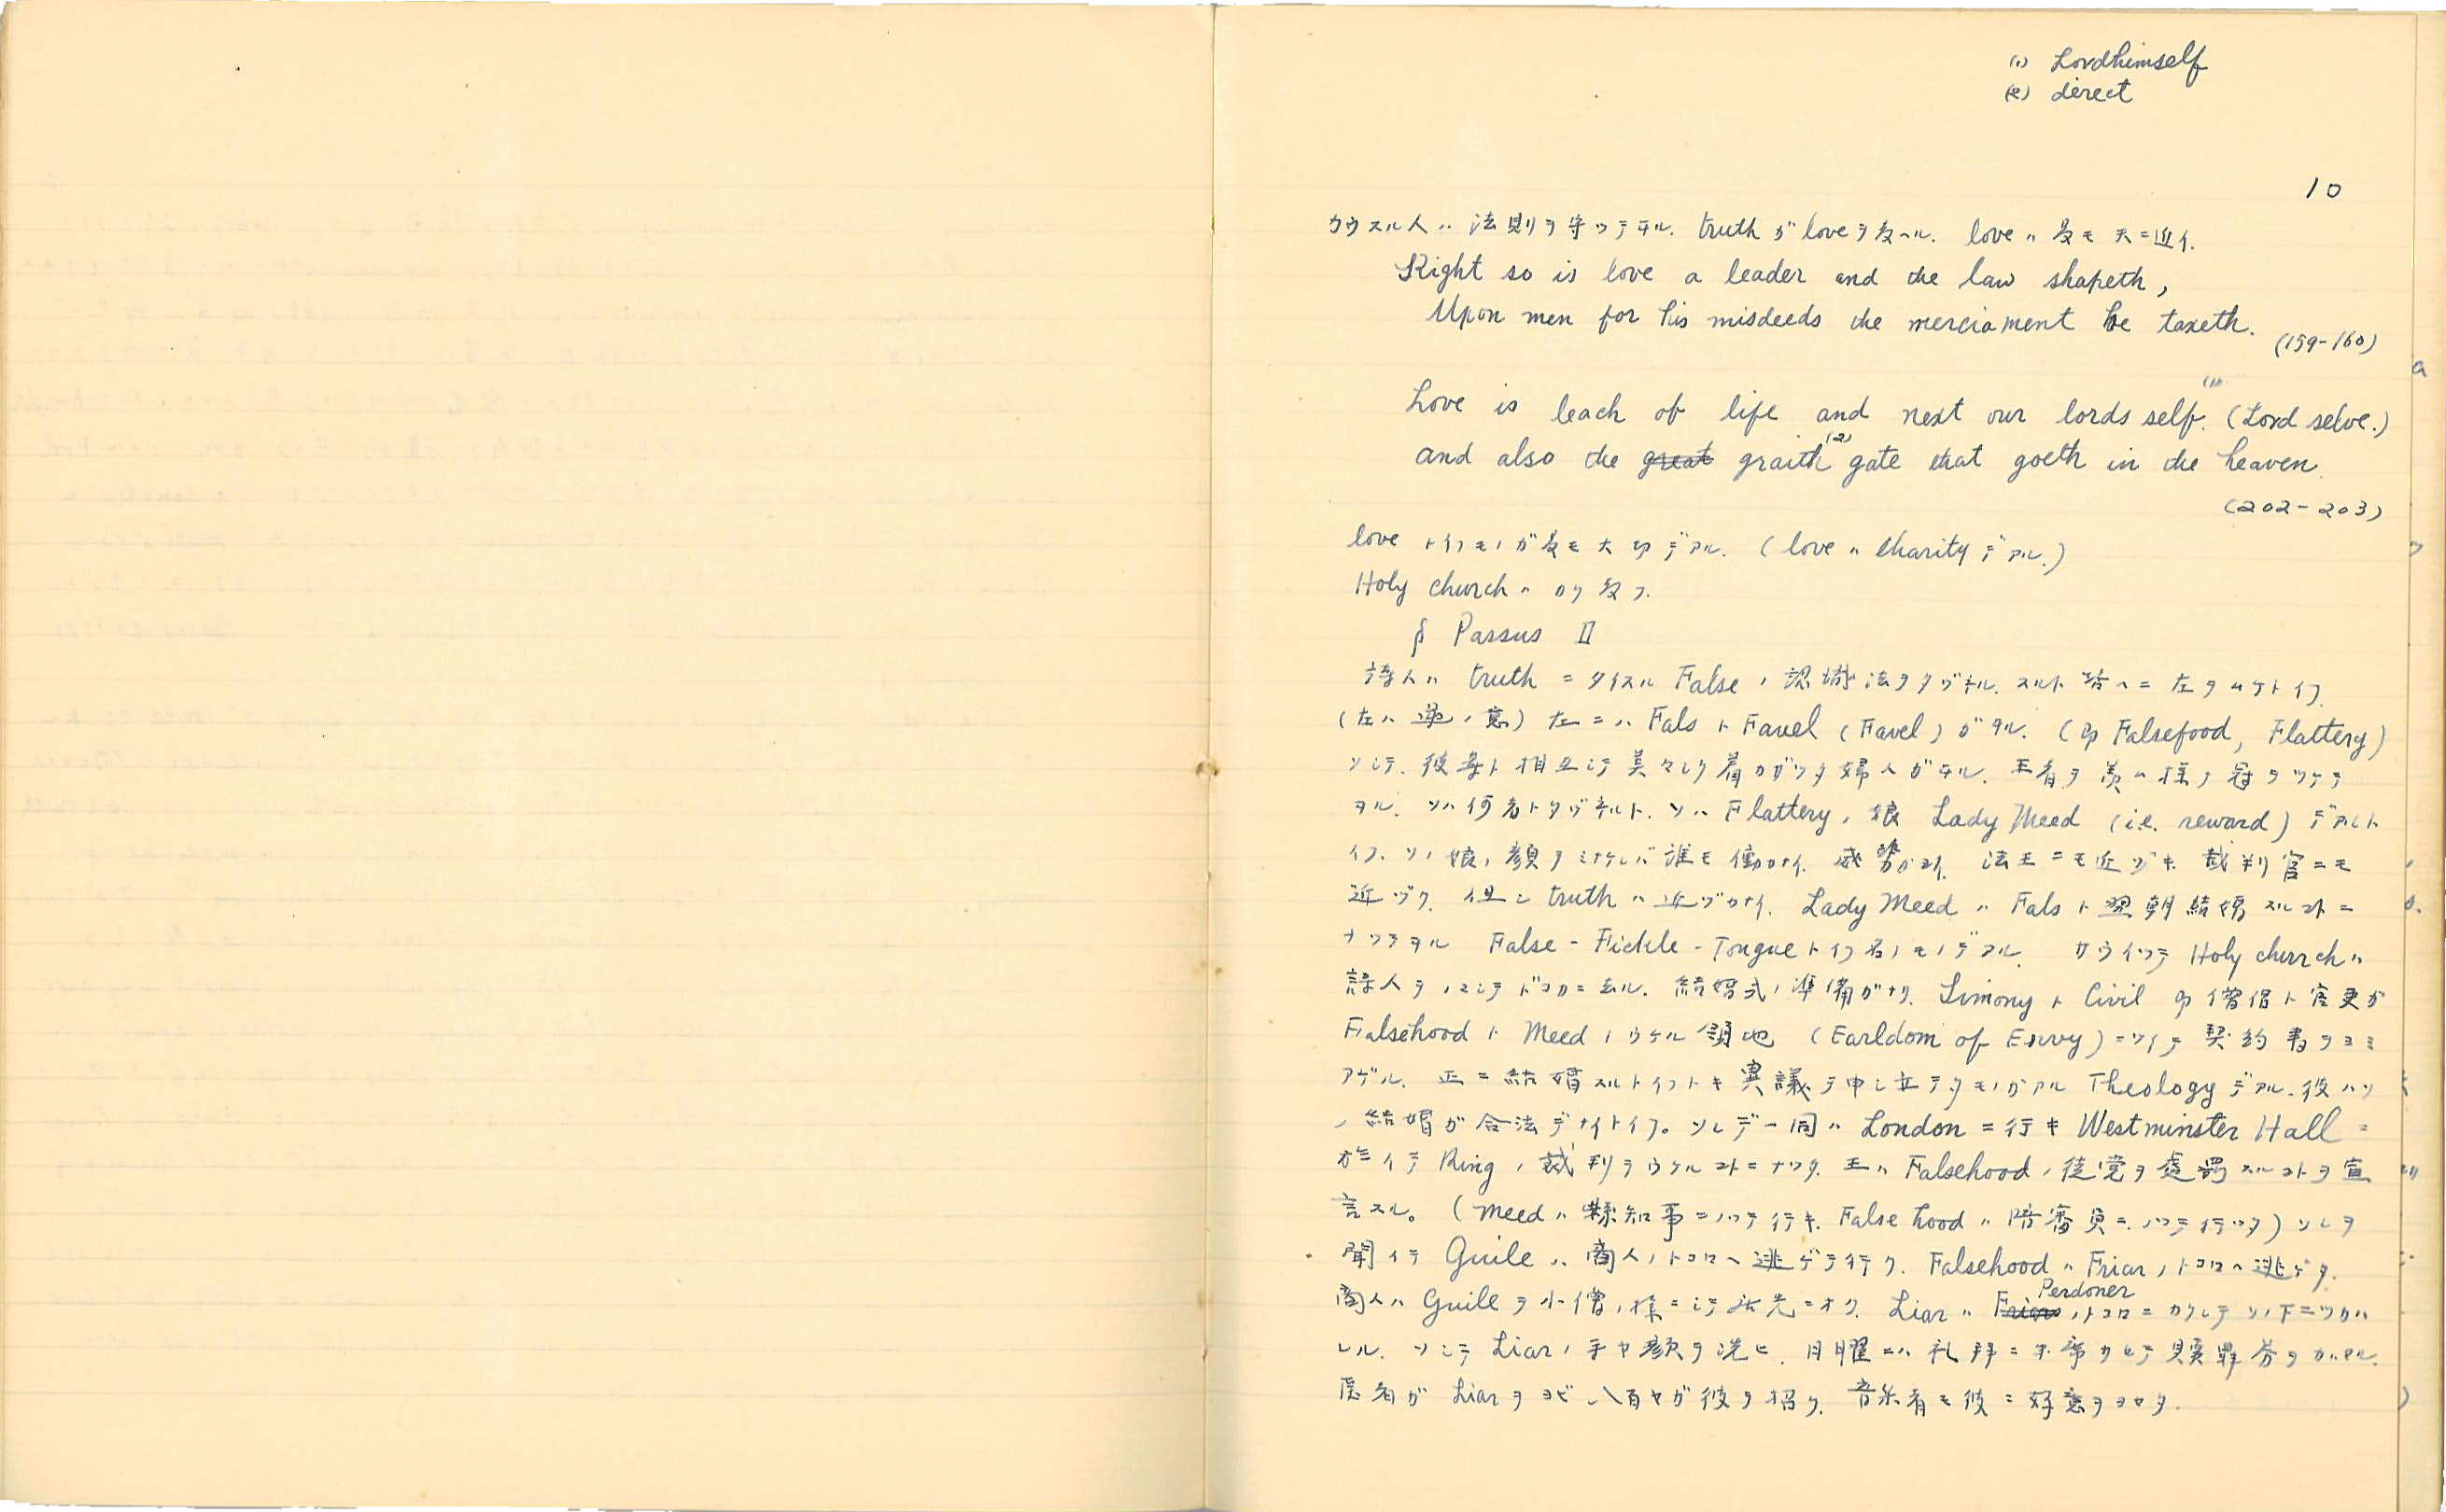 (1) Lordhimself
(2) direct
10
カウスル人ハ 法則ヲ守ツテヰル. truth ガ love ヲ教ヘル. love ハ最モ天ニ近イ.
Right so is love a leader and the law shapeth,
Upon men for his misdeeds the merciament he taxeth.
(159-160)
Love is leach of life and next our lords self.(1) (Lord selve.)
and also the great graith(2) gate that goeth in the heaven
(202-203)
love トイフモノガ最モ大切デアル. (love ハ charity デアル.)
Holy church ハ カク教フ.
§ Passus II
詩人ハ truth ニタイスル False ノ認識法ヲタヅネル. スルト答ヘニ左ヲムケトイフ.
(左ハ逆ノ意) 左ニハ Fals ト Fauel (Favel) ガヰル. (即 Falsefood, Flattery)
ソシテ. 彼等ト相並ンデ美々シク着カザツタ婦人ガヰル. 王者ヲ羨ム様ナ冠ヲツケテ
ヲル. ソハ何者トタヅネルト. ソハ Flattery ノ娘 Lady Meed (i.e. reward) デアルト
イフ. ソノ娘ノ顔ヲミナケレバ誰モ働カナイ. 威勢ガヨイ. 法王ニモ近ヅキ. 裁判官ニモ
近ヅク. 但シ truth ハ近ヅカナイ. Lady Meed ハ Fals ト翌朝結婚スルコトニ
ナツテヲル False-Fickle-Tongue トイフ名ノモノデアル. サウイツテ Holy church ハ
詩人ヲノコシテドコカニ去ル. 結婚式ノ準備ガナリ. Simony ト Civil 即僧侶ト官吏ガ
Falsehood ト Meed ノウケル領地 (Earldom of Envy) ニツイテ契約書ヲヨミ
アゲル. 正ニ結婚スルトイフトキ異議ヲ申シ立テタモノガアル Theology デアル. 彼ハソ
ノ結婚ガ合法デナイトイフ。ソレデ一同ハ London ニ行キ Westminster Hall ニ
於イテ King ノ裁判ヲウケルコトニナツタ. 王ハ Falsehood ノ徒党ヲ處罰スルコトヲ宣
言スル。(Meed ハ縣知事ニノツテ行キ. Falsehood ハ陪審員ニノツテ行ツタ) ソレヲ
聞イテ Guile ハ商人ノトコロヘ逃ゲテ行ク. Falsehood ハ Friar ノトコロヘ逃ゲタ.
商人ハ Guile ヲ小僧ノ様ニシテ店先ニオク. Liar ハ Friar Perdoner ノトコロニカクレテソノ下ニツカハ
レル. ソシテ Liar ノ手ヤ顔ヲ洗ヒ. 日曜ニハ礼拝ニ出席サセテ贖罪券ヲ
医者ガ Liar ヲヨビ 八百ヤガ彼ヲ招ク. 音楽者モ彼ニ好意ヲヨセタ.